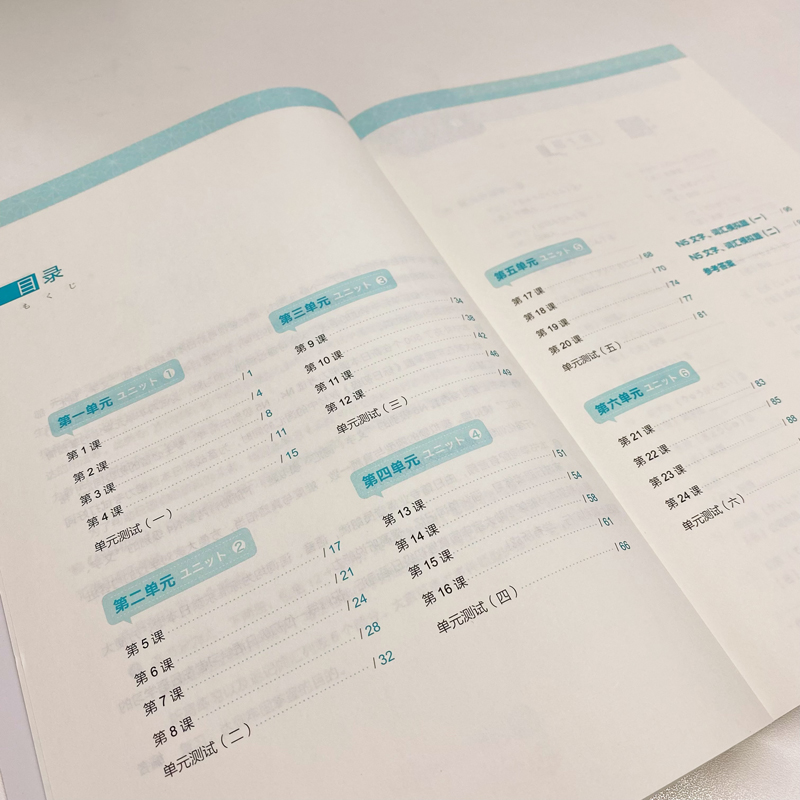 目录
もくじ
第一单元 ユニット 1
第1课 /1
第2课 /4
第3课 /8
第4课 /11
单元测试（一） /15
第二单元 ユニット 2
第5课 /17
第6课 /21
第7课 /24
第8课 /28
单元测试（二） /32
第三单元 ユニット 3
第9课 /34
第10课 /38
第11课 /42
第12课 /46
单元测试（三） /49
第四单元 ユニット 4
第13课 /51
第14课 /54
第15课 /58
第16课 /61
单元测试（四） /66
第五单元 ユニット 5
第17课 /68
第18课 /70
第19课 /74
第20课 /77
单元测试（五） /81
第六单元 ユニット 6
第21课 /83
第22课 /85
第23课 /88
第24课
单元测试（六）
N5 文字、词汇模拟题（一） /95
N5 文字、词汇模拟题（二）
参考答案